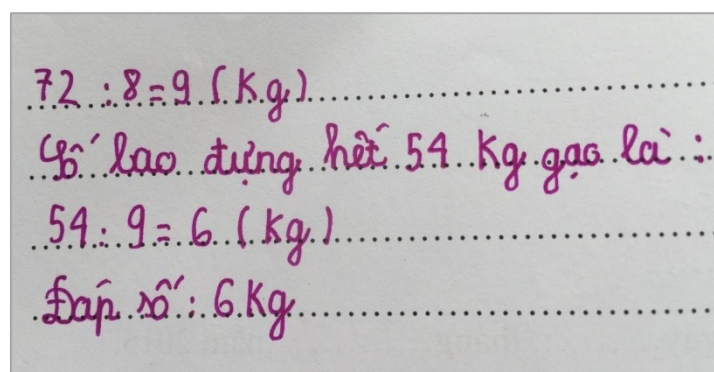 72 : 8 = 9 (Kg)
Số lao đựng hết 54 Kg gạo là :
54 : 9 = 6 (Kg)
Đáp số : 6 Kg